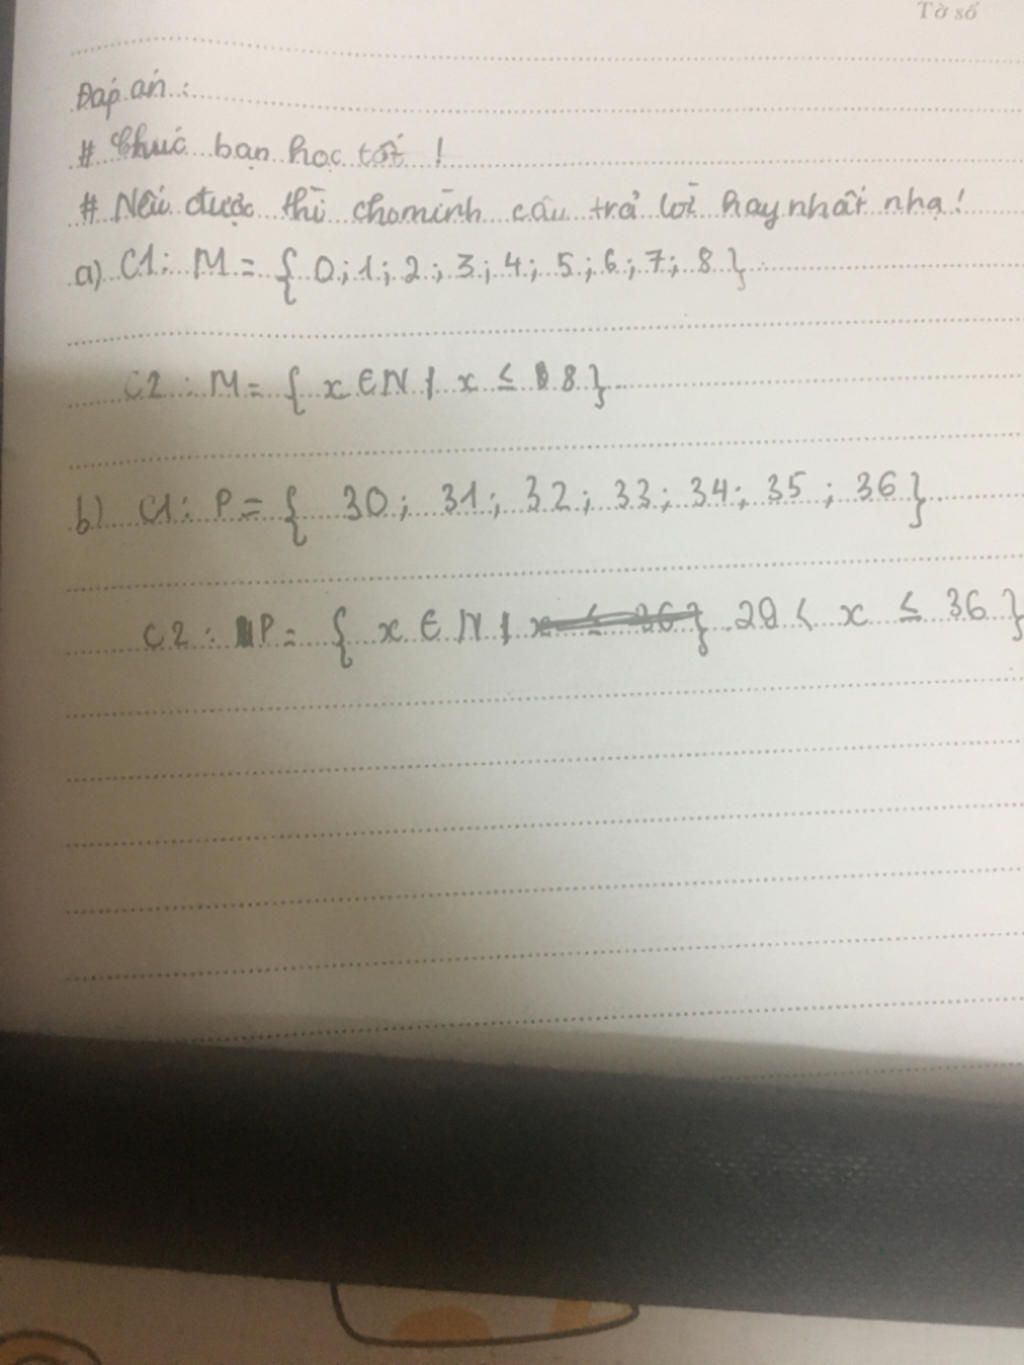 Tờ số
Đáp án :
# Chúc bạn học tốt !
# Nếu được thì cho mình câu trả lời hay nhất nha!
a) C1: M = { 0 ; 1 ; 2 ; 3 ; 4 ; 5 ; 6 ; 7 ; 8 }
C2 : M = { x ∈ N | x ≤ 8 }
b) C1 : P = { 30 ; 31 ; 32 ; 33 ; 34 ; 35 ; 36 }
C2 : P = { x ∈ N | x ≤ 36 } 29 < x ≤ 36 }